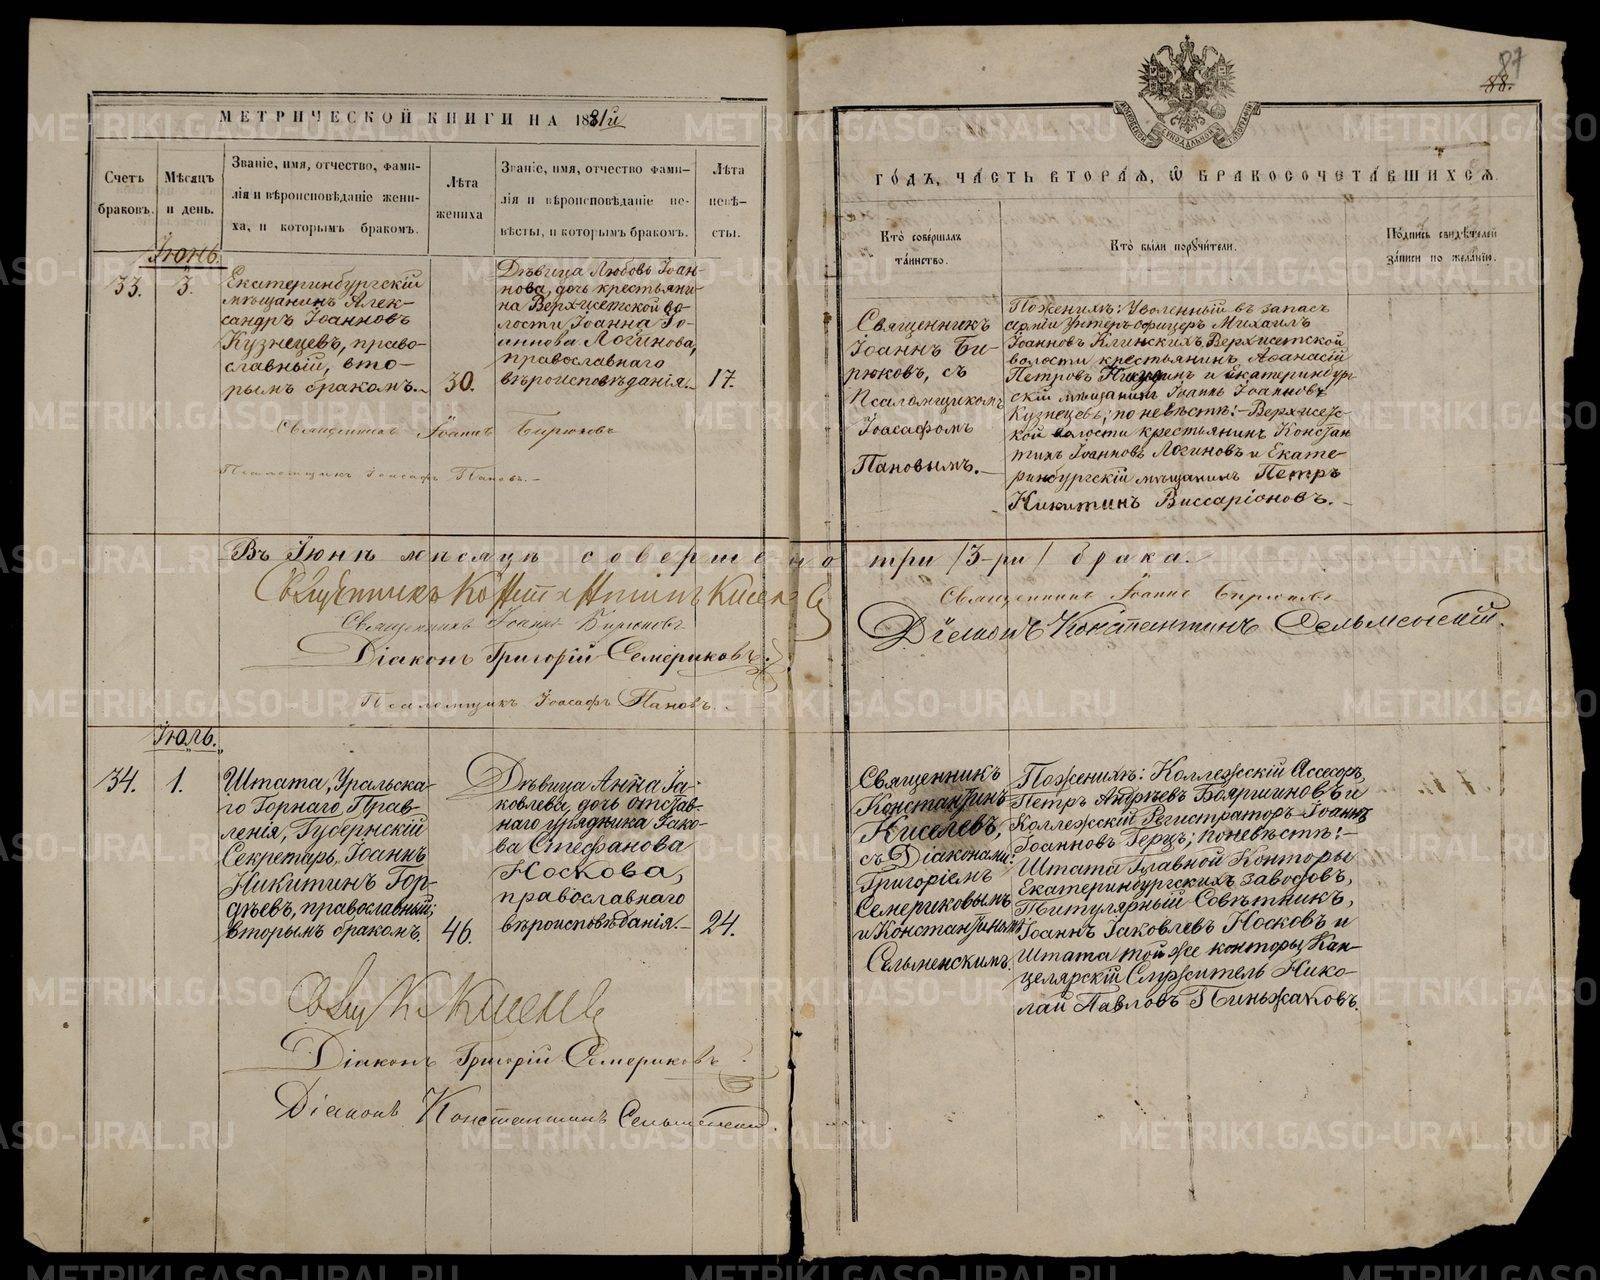 87
88.
МЕТРИЧЕСКОЙ КНИГИ НА 1881й
ГОДЪ, ЧАСТЬ ВТОРАЯ, Ѿ БРАКОСОЧЕТАВШИХСЯ.
Счетъ
браковъ.
Мѣсяцъ
и день.
Званіе, имя, отчество, фами-
лія и вѣроисповѣданіе жени-
ха, и которымъ бракомъ.
Лѣта
жениха
Званіе, имя, отчество фами-
лія и вѣроисповѣданіе не-
вѣсты, и которымъ бракомъ.
Лѣта
невѣ-
сты.
Кто совершалъ
таинство.
Кто были поручители.
Подпись свидѣтелей
записи по желанію.
Іюнь.
33.
3.
Екатеринбургскій
мѣщанинъ Алек-
сандръ Іоанновъ
Кузнецевъ, право-
славный, вто-
рымъ бракомъ.
30.
Дѣвица Любовь Іоан-
нова, дочь крестьяни-
на Верхисетской во-
лости, Іоанна Іо-
аннова Логинова,
православнаго
вѣроисповѣданія.
17.
Священникъ
Іоаннъ Би-
рюковъ, съ
Псаломщикомъ
Іоасафомъ
Пановымъ.
По женихѣ: Уволенный въ запасъ
арміи унтеръ-офицеръ Михаилъ
Іоанновъ Клинскихъ, Верхисетской
волости крестьянинъ, Аѳанасій
Петровъ и Екатеринбур-
скій мѣщанинъ Іоаннъ Іоанновъ
Кузнецевъ; по невѣстѣ:- Верхисетс-
кой волости крестьянинъ Констан
тинъ Іоанновъ Логиновъ и Екате-
ринбургскій мѣщанинъ Петръ
Никитинъ Виссаріоновъ.
Священникъ Іоаннъ Бирюковъ
Псаломщикъ Іоасафъ Пановъ.
Въ Іюнѣ мѣсяцѣ совершено три /3-ри/ брака.
Священникъ Константинъ Киселевъ
Священникъ Іоаннъ Бирюковъ
Священникъ Іоаннъ Бирюковъ
Діаконъ Константинъ Сельменскій.
Діаконъ Григорій Семериковъ.
Псаломщикъ Іоасафъ Пановъ.
Іюль.
34.
1.
Штата, Уральска-
го Горнаго Прав-
ленія, Губернскій
Секретарь, Іоаннъ
Никитинъ Гор-
дѣевъ, православный;
вторымъ бракомъ.
46.
Дѣвица Анна Іа-
ковлева, дочь отстав-
наго урядника Іако-
ва Стефанова
Носкова,
православнаго
вѣроисповѣданія.
24.
Священникъ
Константинъ
Киселевъ,
съ Діаконами:
Григоріемъ
Семериковымъ
и Константиномъ
Сельменскимъ.
По женихѣ: Коллежскій Ассесоръ,
Петръ Андрѣевъ Бояршиновъ и
Коллежскій Регистраторъ Іоаннъ
Іоанновъ Герцъ; по невѣстѣ:-
Штата Главной Конторы
Екатеринбургскихъ заводовъ,
Титулярный Совѣтникъ,
Іоаннъ Іаковлевъ Носковъ и
Штата той же конторы Кан-
целярскій Служитель Нико-
лай Павловъ Пиньжаковъ.
Свящ К Киселевъ
Діаконъ Григорій Семериковъ.
Діаконъ Константинъ Сельменскій.
METRIKI.GASO-URAL.RU